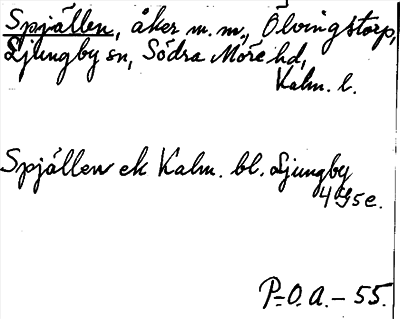 Spjällen, åker m.m., Ölvingstorp,
Ljungby sn, Södra Möre hd,
Kalm. l.
Spjällen ek Kalm. bl. Ljungby
4 G5e.
P-O.A.-55.